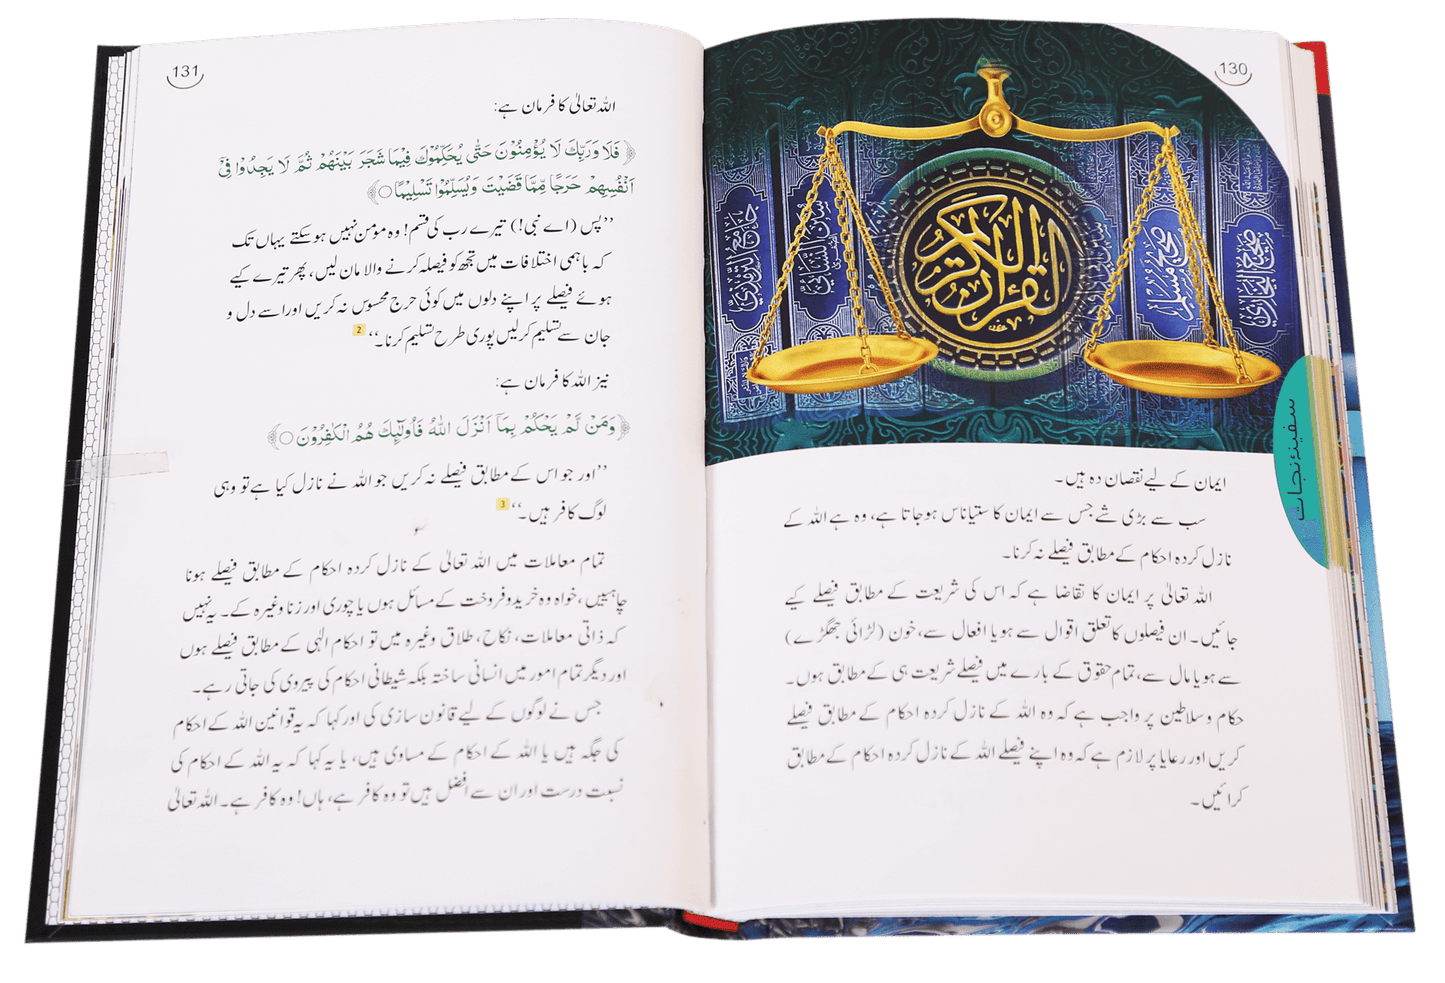 130
جامع الترمذي
سنن النسائي
القرآن الكريم
صحيح مسلم
صحيح البخاري
سفینۂ نجات
ایمان کے لیے نقصان دہ ہیں۔
سب سے بڑی شے جس سے ایمان کا ستیاناس ہوجاتا ہے، وہ ہے اللہ کے
نازل کردہ احکام کے مطابق فیصلے نہ کرنا۔
اللہ تعالیٰ پر ایمان کا تقاضا ہے کہ اس کی شریعت کے مطابق فیصلے کیے
جائیں۔ ان فیصلوں کا تعلق اقوال سے ہو یا افعال سے، خون (لڑائی جھگڑے)
سے ہو یا مال سے، تمام حقوق کے بارے میں فیصلے شریعت ہی کے مطابق ہوں۔
حکام و سلاطین پر واجب ہے کہ وہ اللہ کے نازل کردہ احکام کے مطابق فیصلے
کریں اور رعایا پر لازم ہے کہ وہ اپنے فیصلے اللہ کے نازل کردہ احکام کے مطابق
کرائیں۔
131
اللہ تعالیٰ کا فرمان ہے:
﴿فَلَا وَرَبِّكَ لَا يُؤْمِنُوْنَ حَتّٰى يُحَكِّمُوْكَ فِيْمَا شَجَرَ بَيْنَهُمْ ثُمَّ لَا يَجِدُوْا فِيْٓ
اَنْفُسِهِمْ حَرَجًا مِّمَّا قَضَيْتَ وَيُسَلِّمُوْا تَسْلِيْمًا ○﴾
’’پس (اے نبی!) تیرے رب کی قسم! وہ مومن نہیں ہوسکتے یہاں تک
کہ باہمی اختلافات میں تجھ کو فیصلہ کرنے والا مان لیں، پھر تیرے کیے
ہوئے فیصلے پر اپنے دلوں میں کوئی حرج محسوس نہ کریں اور اسے دل و
جان سے تسلیم کرلیں پوری طرح تسلیم کرنا۔‘‘ 2
نیز اللہ کا فرمان ہے:
﴿وَمَنْ لَّمْ يَحْكُمْ بِمَآ اَنْزَلَ اللّٰهُ فَاُولٰٓئِكَ هُمُ الْكٰفِرُوْنَ ○﴾
’’اور جو اس کے مطابق فیصلے نہ کریں جو اللہ نے نازل کیا ہے تو وہی
لوگ کافر ہیں۔‘‘ 3
تمام معاملات میں اللہ تعالیٰ کے نازل کردہ احکام کے مطابق فیصلے ہونا
چاہییں، خواہ وہ خرید و فروخت کے مسائل ہوں یا چوری اور زنا وغیرہ کے۔ یہ نہیں
کہ ذاتی معاملات، نکاح، طلاق وغیرہ میں تو احکام الٰہی کے مطابق فیصلے ہوں
اور دیگر تمام امور میں انسانی ساختہ بلکہ شیطانی احکام کی پیروی کی جاتی رہے۔
جس نے لوگوں کے لیے قانون سازی کی اور کہا کہ یہ قوانین اللہ کے احکام
کی جگہ ہیں یا اللہ کے احکام کے مساوی ہیں، یا یہ کہا کہ یہ اللہ کے احکام کی
نسبت درست اور ان سے افضل ہیں تو وہ کافر ہے، ہاں! وہ کافر ہے۔ اللہ تعالیٰ